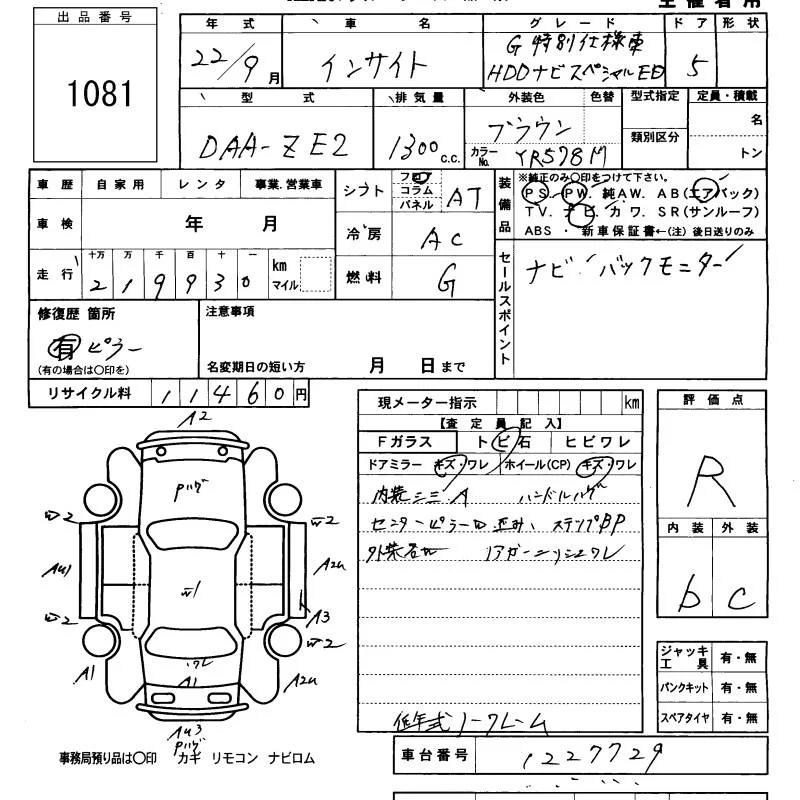 主催者用
出品番号
1081
年式 車名 グレード ドア 形状
22/9月 インサイト G 特別仕様車
HDDナビスペシャルED 5
型式 排気量 外装色 色替 型式指定 定員・積載
DAA-ZE2 1300c.c. ブラウン 類別区分 名
カラーNo. YR578M トン
車歴 自家用 レンタ 事業.営業車
車検 年 月
走行 十万 万 千 百 十 一
219930 km マイル
シフト フロア コラム パネル AT
冷房 AC
燃料 G
装備品
※純正のみ〇印をつけて下さい。
PS. PW. 純AW. AB(エアバック)
TV. ナビ. カワ. SR(サンルーフ)
ABS ・ 新車保証書←(注) 後日送りのみ
セールスポイント
ナビ バックモニター
修復歴 箇所
有 ピラー
(有の場合は〇印を)
注意事項
名変期日の短い方 月 日まで
リサイクル料 11460円
現メーター指示 km
【査定員記入】
Fガラス トビ石 ヒビワレ
ドアミラー キズ・ワレ ホイール(CP) キズ・ワレ
内装シミ.A ハンドルハゲ
センターピラー
外装
低年式
評価点
R
内装 外装
b C
ジャッキ工具 有・無
パンクキット 有・無
スペアタイヤ 有・無
A2
Pハゲ
W2 W2
AU1 A2u
W1
A3
W2 W2
A1 ワレ A2u
A1
AU3
Pハゲ
事務局預り品は〇印 カギ リモコン ナビロム
車台番号 1227729